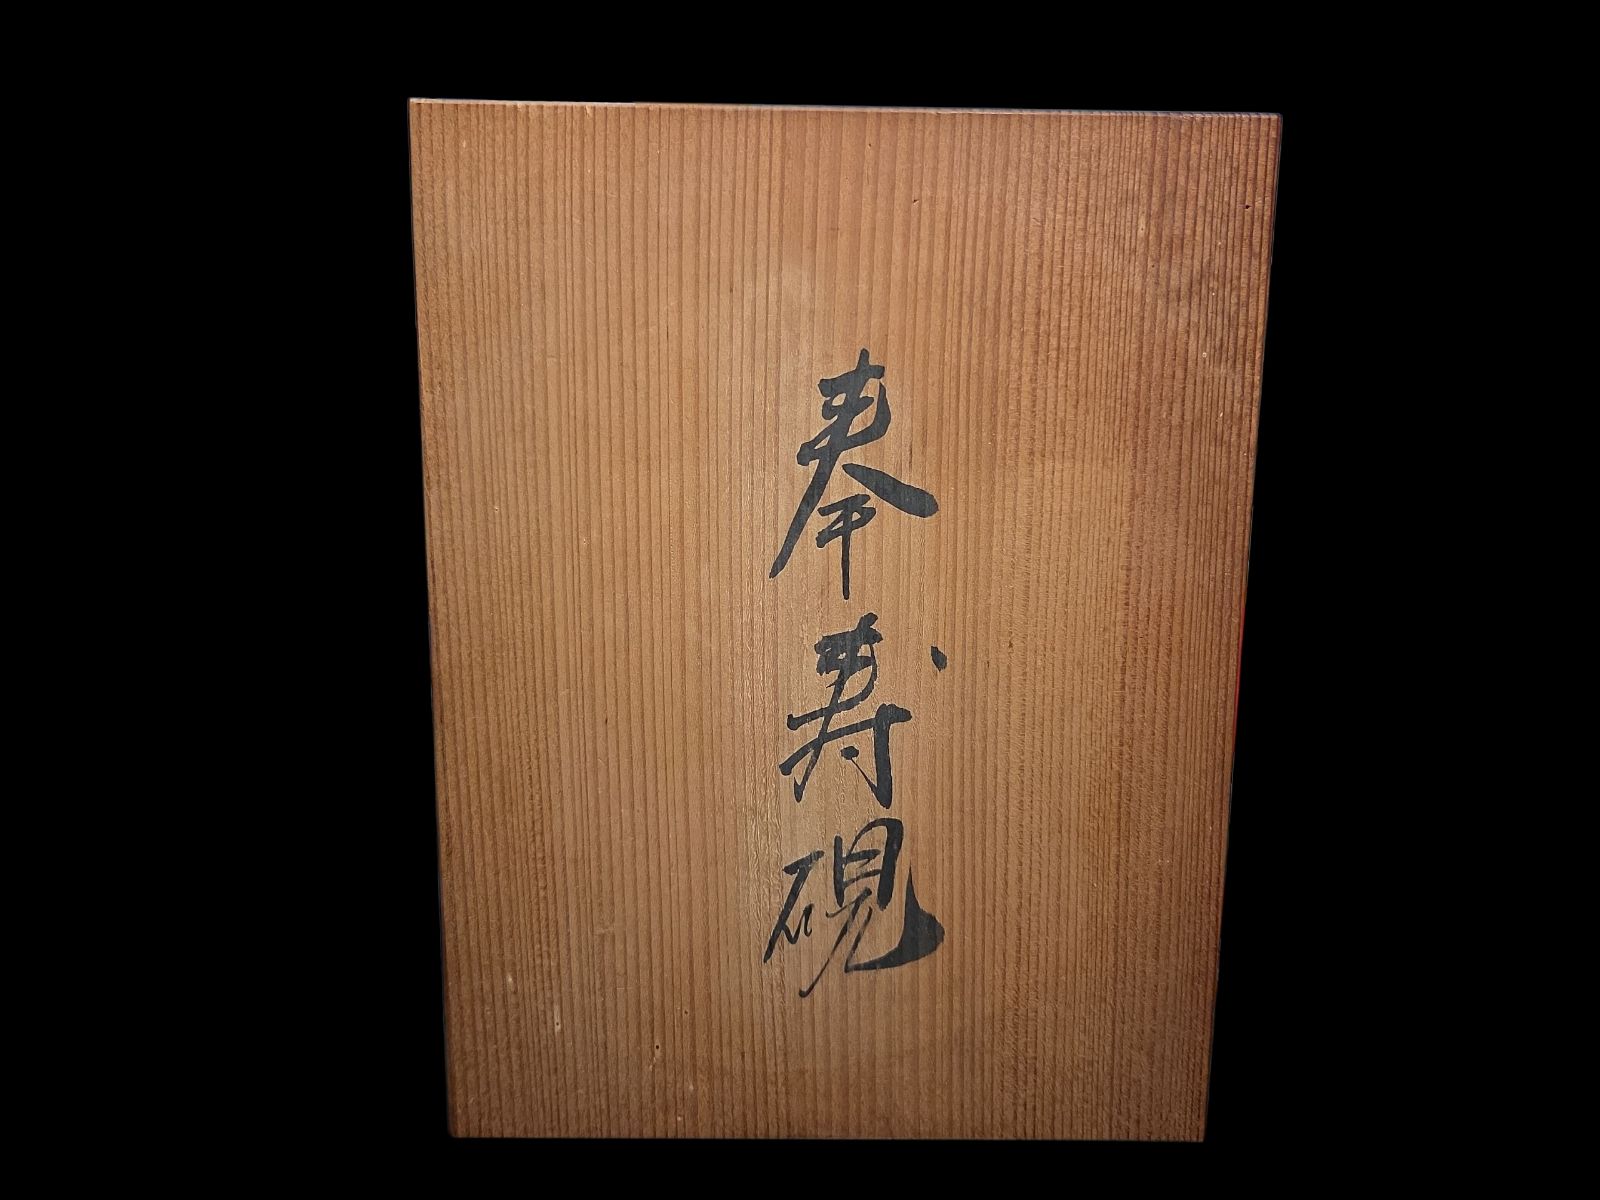 奉寿硯